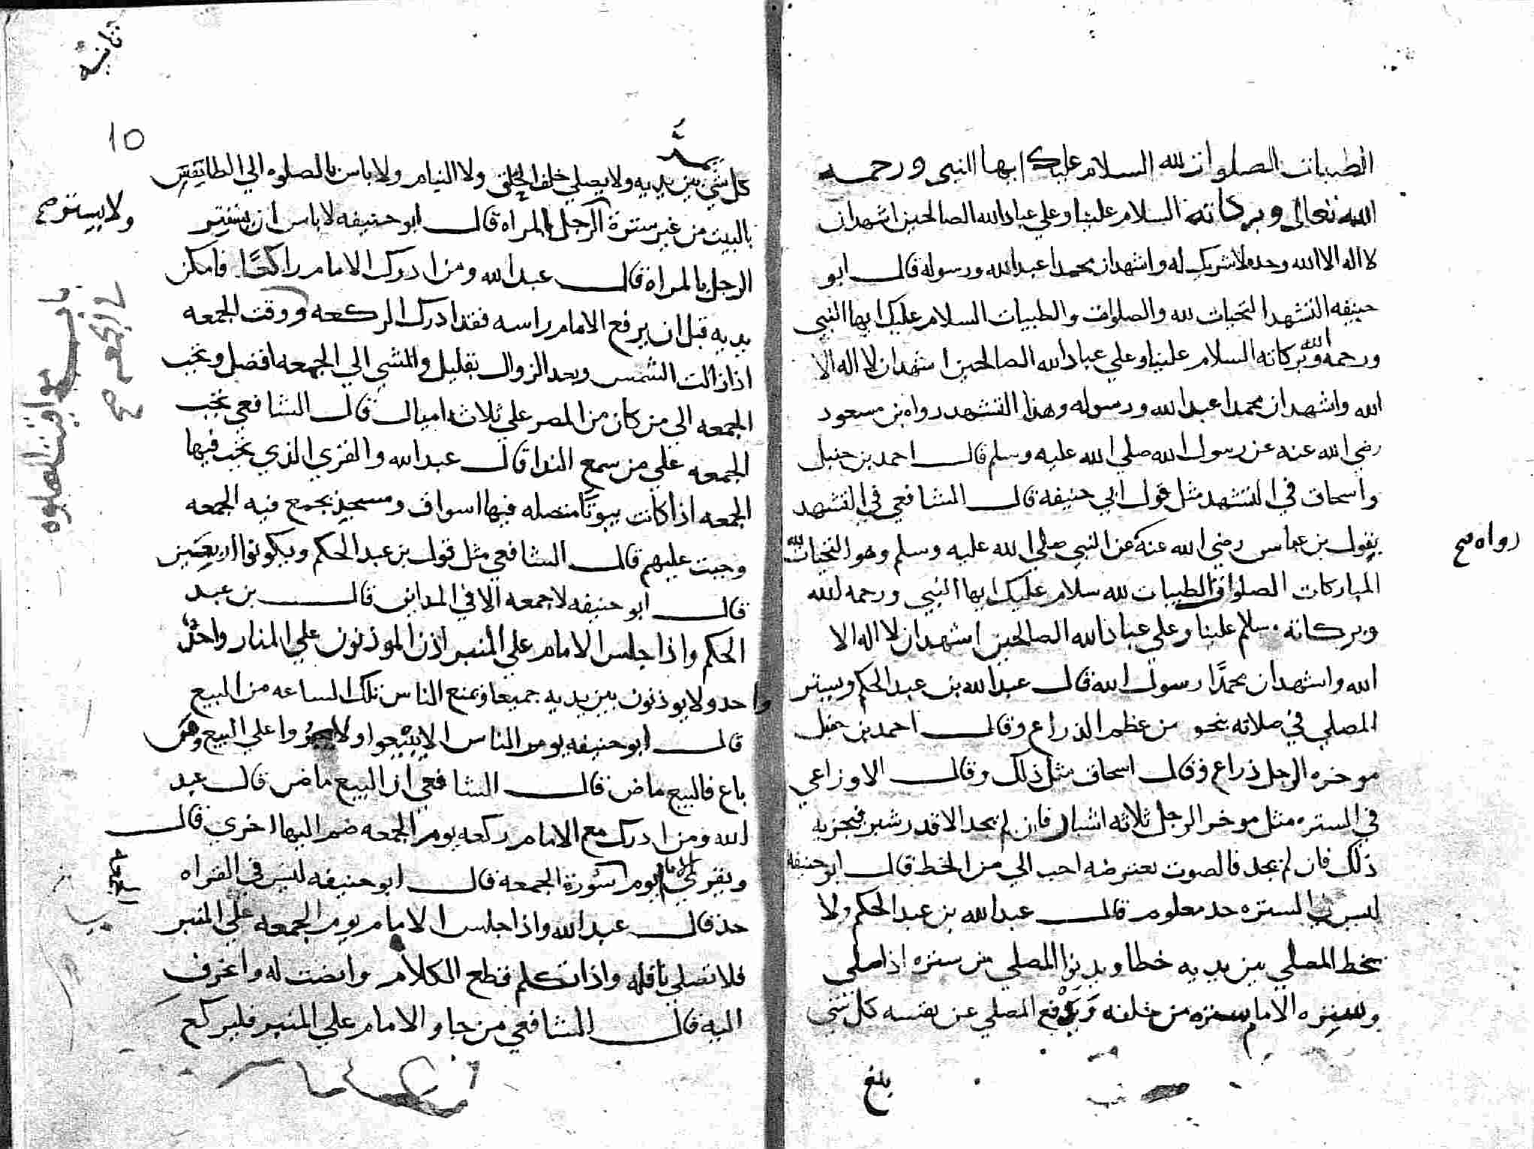 الطيبات الصلوات لله السلام عليك ايها النبي ورحمه
الله تعالى وبركاته السلام علينا وعلي عباد الله الصالحين اشهد ان
لا اله الا الله وحده لا شريك له واشهد ان محمدا عبد الله ورسوله قال ابو
حنيفه التشهد التحيات لله والصلوات والطيبات السلام عليك ايها النبي
ورحمه الله وبركاته السلام علينا وعلي عباد الله الصالحين اشهد ان لا اله الا
الله واشهد ان محمدا عبد الله ورسوله وهذا التشهد رواه بن مسعود
رضي الله عنه عن رسول الله صلي الله عليه وسلم قال احمد بن حنبل
واسحاق في التشهد مثل قول ابي حنيفه قال الشافعي في التشهد
بقول بن عباس رضي الله عنه عن النبي صلي الله عليه وسلم وهو التحيات لله
رواه صح
المباركات الصلوات الطيبات لله سلام عليك ايها النبي ورحمه الله
وبركاته سلام علينا وعلي عباد الله الصالحين اشهد ان لا اله الا
الله واشهد ان محمدًا رسول الله قال عبد الله بن عبد الحكم ويستر
المصلي في صلاته نحو من عظم الذراع وقال احمد بن حنبل
موخره الرجل ذراع وقال اسحاق مثل ذلك وقال الاوزاعي
في الستره مثل موخر الرجل ثلاثه اشبار فان لم يجد الا قدر شبر فيجزيه
ذلك فان لم يجد فالصوت يعترضه احب الي من الخط قال ابو حنيفه
ليس في الستره حد معلوم قال عبد الله بن عبد الحكم ولا
يخط المصلي بين يديه خطا ويدنوا المصلي من سترته اذا صلى
وستره الامام ستره من خلفه ويدفع المصلي عن نفسه كل شي
بلغ
ثانية
10
يمر
كل شي بين يديه ولا يصلي خلف الحلق ولا النيام ولا باس بالصلوه الي الطايفين
بالبيت من غير سترة الرجل بالمراه قال ابو حنيفه لا باس ان يستتر
ولا يستتر صح
الرجل بالمراه قال عبد الله ومن ادرك الامام راكعًا فامكن
يديه قبل ان يرفع الامام راسه فقد ادرك الركعه ووقت الجمعه
باب مواقيت الصلوه
في الجمعه صح
اذا زالت الشمس وبعد الزوال بقليل والمشي الي الجمعه افضل وتجب
الجمعه الي من كان من المصر علي ثلاثه اميال قال الشافعي تجب
الجمعه علي من سمع الندا قال عبد الله والقري الذي تجب فيها
الجمعه اذا كانت بيوتا متصله فيها اسواق ومسجد يجمع فيه الجمعه
وجبت عليهم قال الشافعي مثل قول بن عبد الحكم ويكونوا اربعين
قال ابو حنيفه لا جمعه الا في المداين قال بن عبد
الحكم واذا جلس الامام علي المنبر اذن الموذنون علي المنار واحدا
واحد ولا يوذنون بين يديه جميعا ويمنع الناس تلك الساعه من البيع
قال ابو حنيفه يومر الناس الا يبيعوا ولا علي البيع ومن
باع فالبيع ماض قال الشافعي ان البيع ماض قال عبد
الله ومن ادرك مع الامام ركعه يوم الجمعه ضم اليها اخري قال
ويقر الامام يوم سورة الجمعه قال ابو حنيفه ليس في القراه
حد قال عبد الله واذا جلس الامام يوم الجمعه علي المنبر
فلا تصلي نافله واذا تكلم فقطع الكلام وانصت له
اليه قال الشافعي من جا والامام علي المنبر فليركع